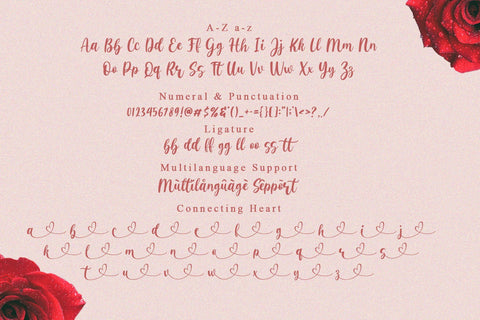 A-Z a-z
Aa Bb Cc Dd Ee Ff Gg Hh Ii Jj Kk Ll Mm Nn
Oo Pp Qq Rr Ss Tt Uu Vv Ww Xx Yy Zz
Numeral & Punctuation
0123456789!@#$%&*()_+-={}[]:"|;\<>?,./
Ligature
bb dd ff gg ll oo ss tt
Multilanguage Support
Mùltîlångûägè Sèppört
Connecting Heart
a b c d e f g h i j
k l m n o p q r s
t u v w x y z